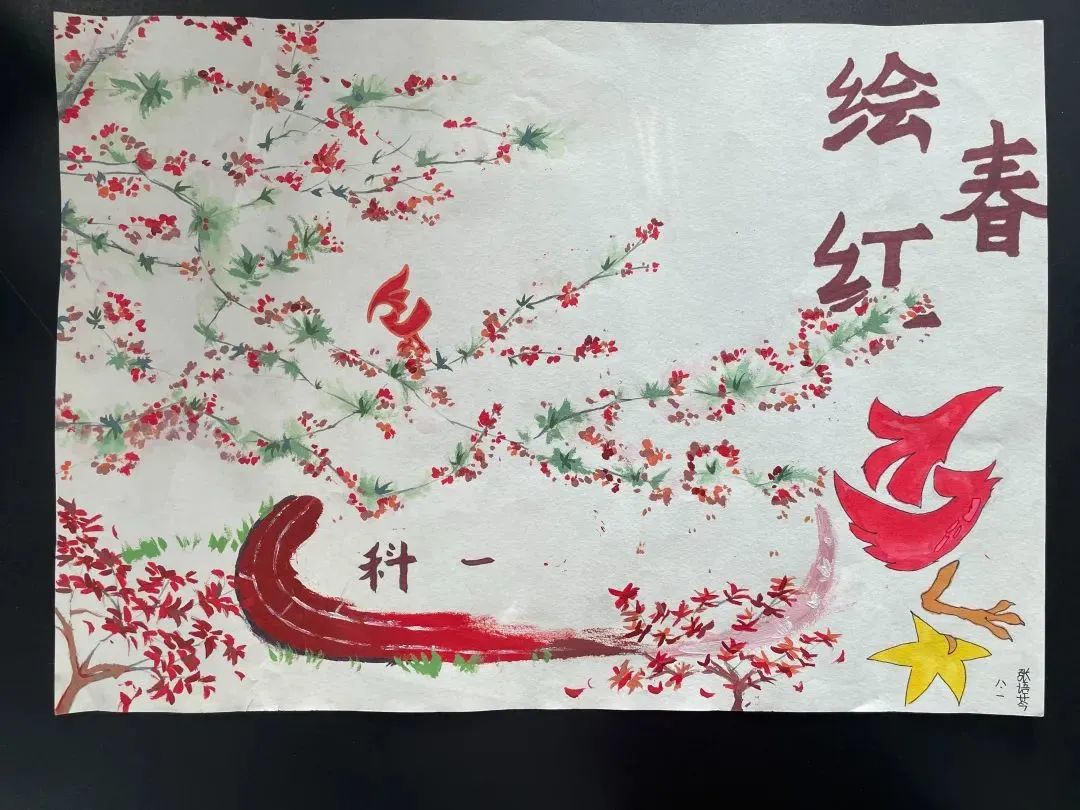 春
绘红
科一
张
八.一